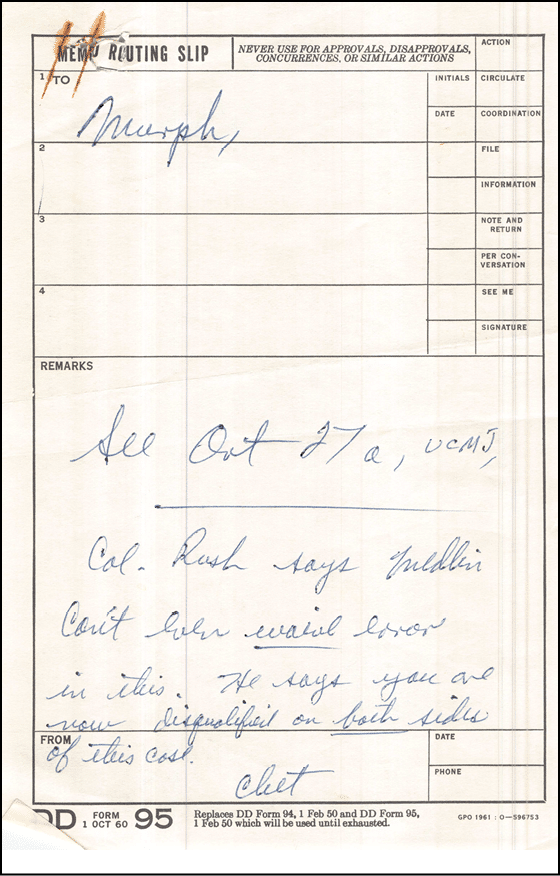 MEMO ROUTING SLIP
NEVER USE FOR APPROVALS, DISAPPROVALS,
CONCURRENCES, OR SIMILAR ACTIONS
ACTION
1 TO
INITIALS
CIRCULATE
Murph,
DATE
COORDINATION
2
FILE
INFORMATION
3
NOTE AND
RETURN
PER CON-
VERSATION
4
SEE ME
SIGNATURE
REMARKS
See Art 27a, UCMJ,
Col. Rush says Medlin
Can't even waive error
in this. He says you are
now disqualified on both sides
of this case.
Chet
FROM
DATE
PHONE
DD FORM 1 OCT 60 95
Replaces DD Form 94, 1 Feb 50 and DD Form 95,
1 Feb 50 which will be used until exhausted.
GPO 1961 : O-596753